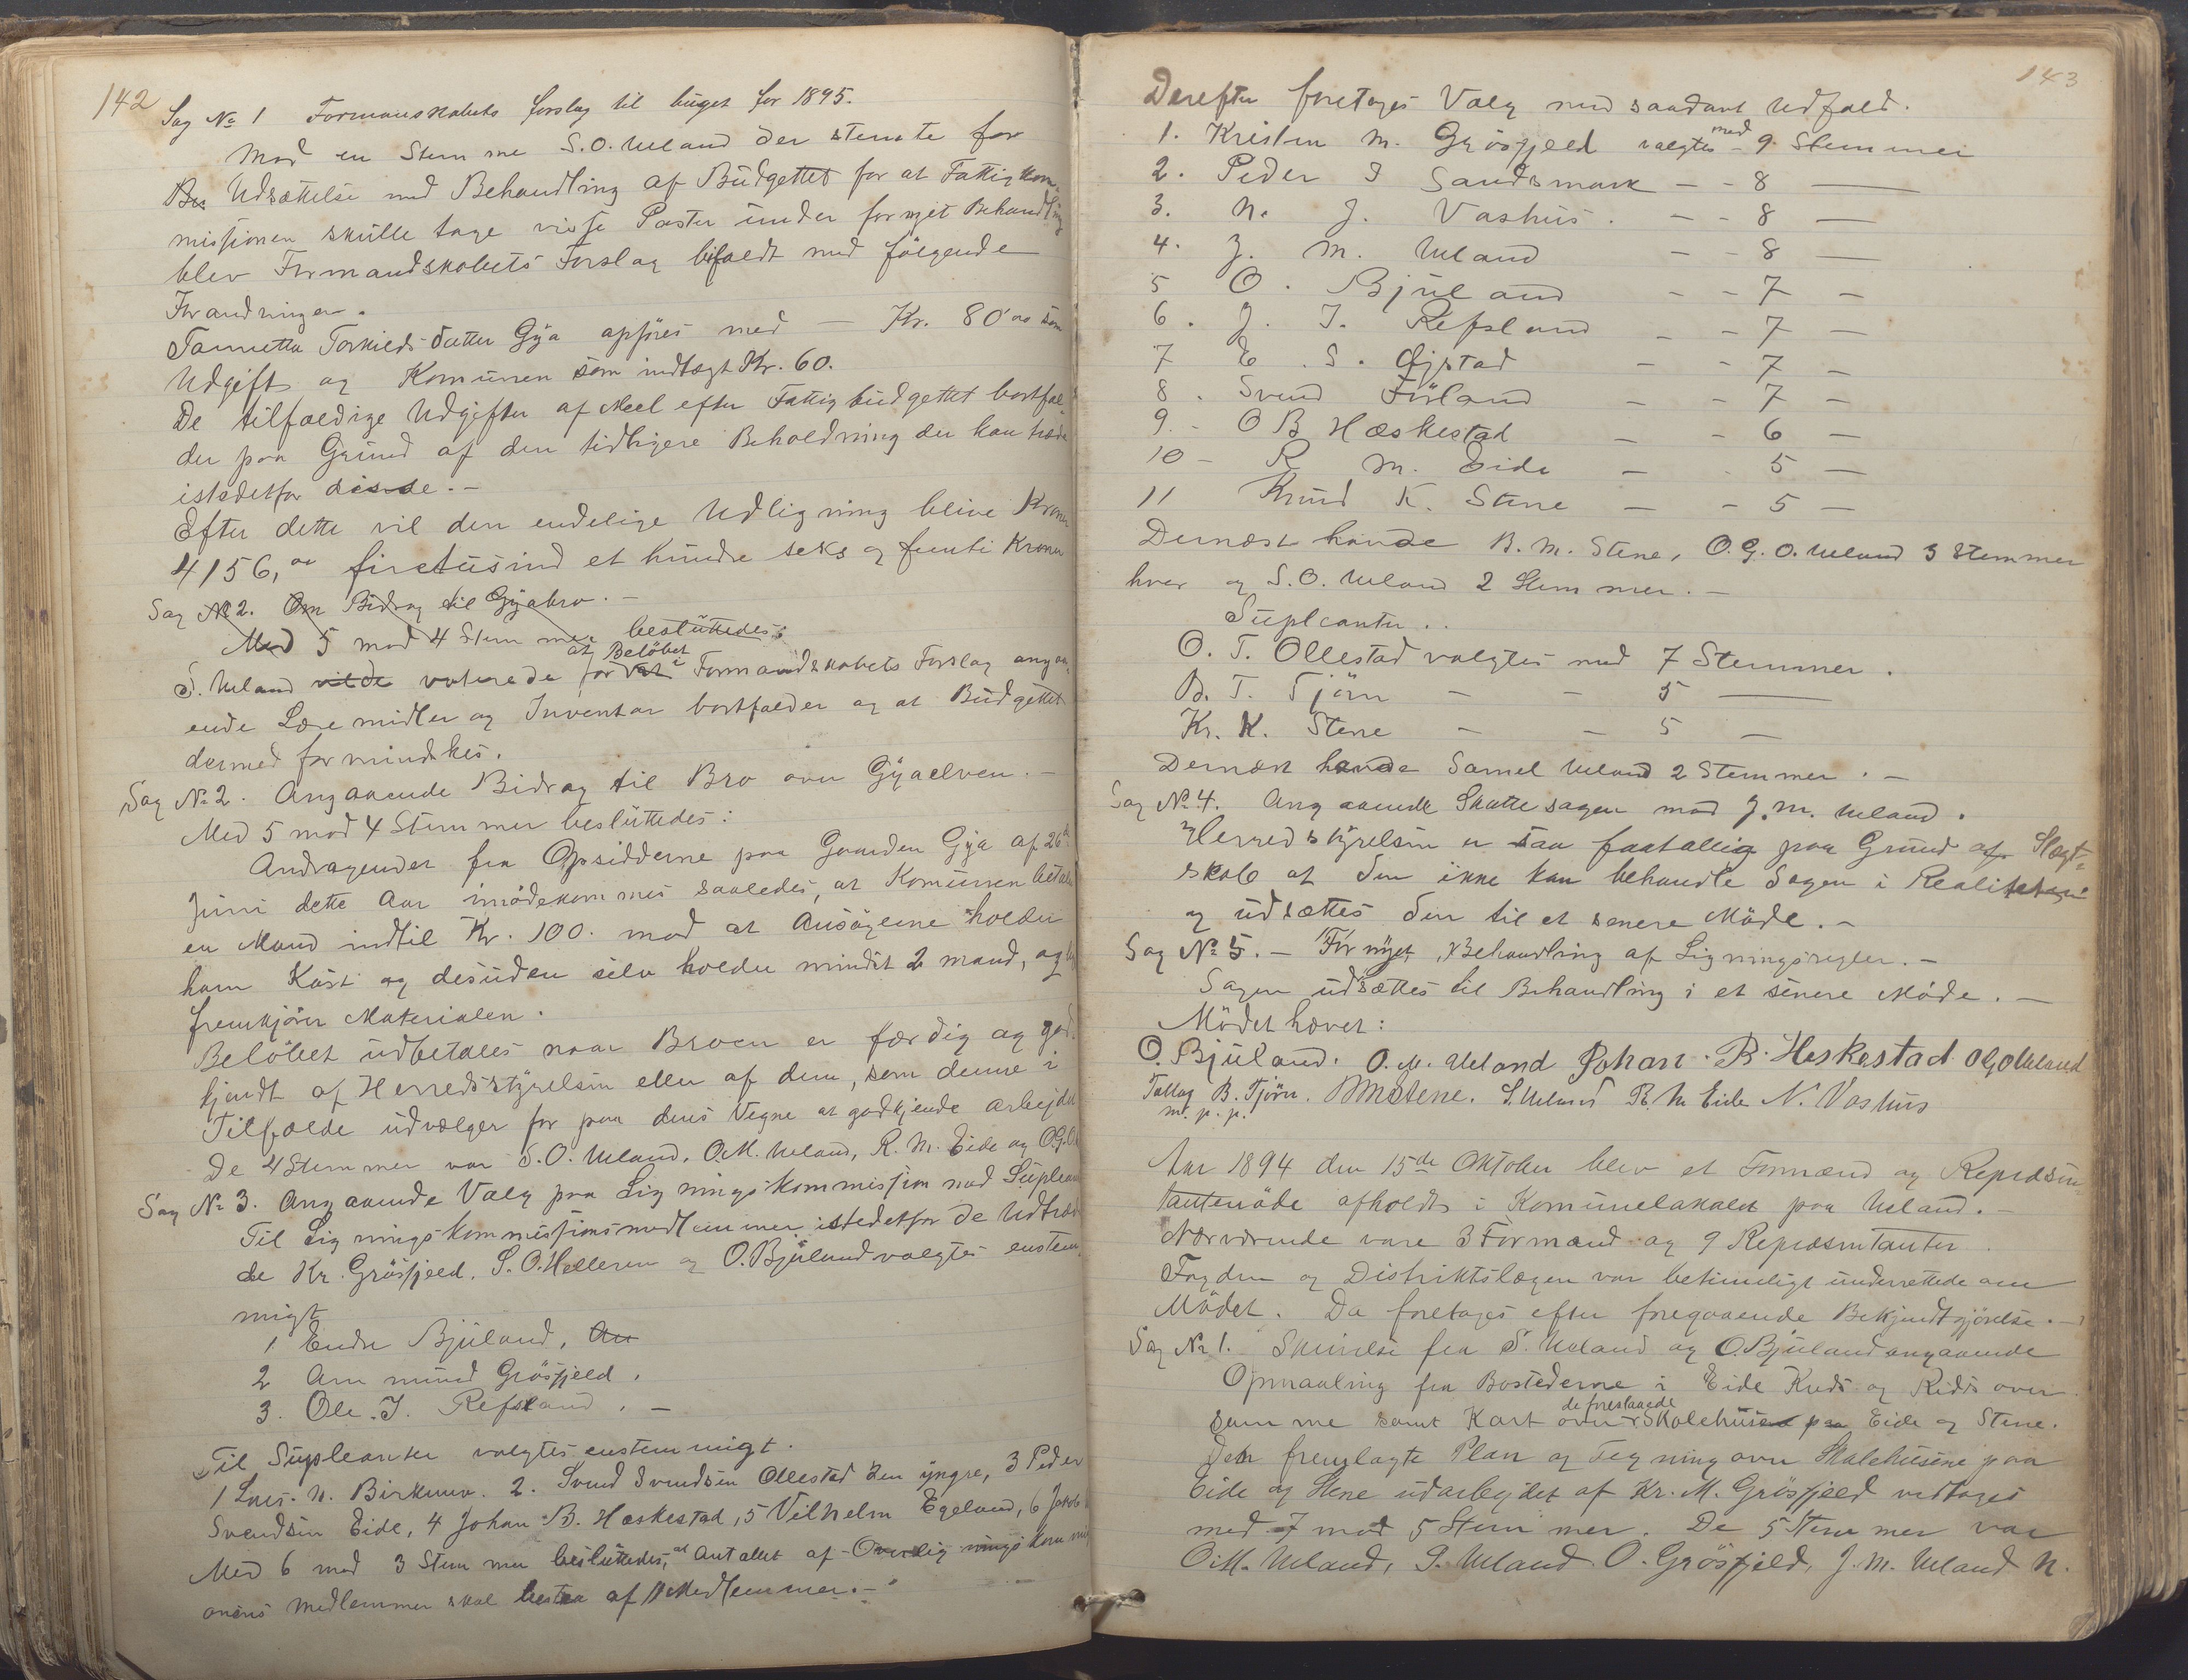 142
Sag № 1 Formanskabets forslag til buget for 1895.
Mod en Stemme S.O. Ueland der stemte for
Udsættelse med Behandling af Büdgettet for at Fattigkom-
missionen skülle tage visse Poster ünder fornyet Behandling
blev Formandskabets Forslag bifaldt med fölgende
Forandringer.
Tannetta Torkieldsdatter Gya opføres med — Kr. 80,00 som
Udgift og Komünen som indtægt Kr. 60.
De tilfældige Udgifter af Meel efter Fattigbüdgettet bortfal-
der paa Gründ af den tidligere Beholdning der kan træde
istedetfor disse. —
Efter dette vil den endelige Udligning blive Kroner
4156,00 firetüsind et hündre seks og femti Kroner
Sag № 2. Om Bidrag til Gyabro. —
Med 5 mod 4 Stemmer beslüttedes:
S. Ueland vilde voterede for at Beløbet i Formandskabets Forslag angaa-
ende Læremidler og Inventar bortfalder og at Büdgettet
dermed formindskes.
Sag № 2. Angaaende Bidrag til Bro over Gyaelven. —
Med 5 mod 4 Stemmer beslüttedes:
Andragender fra Opsidderne paa Gaarden Gya af 26de
Juni dette Aar imødekommes saaledes, at Komünen betaler
en Mand indtil Kr. 100. mod at Ansøgerne holder
ham Kost og desüden selv holder mindst 2 mand, og
fremkjører Materialen.
Beløbet üdbetales naar Broen er færdig og god-
kjendt af Herredsstyrelsen eller af dem, som denne i
Tilfælde üdvælger for paa dens Vegne at godkjende arbejdet
De 4 Stemmer var S.O. Ueland, O.M. Ueland, R. M. Eide og O.G.O.
Sag № 3. Angaaende Valg paa Ligningskommission med Süpleant
Til Ligningskommissionsmedlemmer istedetfor de Udtræden
de Kr. Grösfjeld, S.O. Helleren og O. Bjüland valgtes enstem
migt
1 Endre Bjüland,
2 Ammünd Grösfjeld.
3. Ole J. Refsland. —
Til Süpleanter valgtes enstemmigt.
1 Lars N. Birkemo. 2. Svend Svendsen Ollestad den yngre, 3 Peder
Svendsen Eide, 4 Johan B. Hæskestad, 5 Vilhelm Egeland, 6 Jakob
Med 6 mod 3 Stemmer beslüttedes, at Antallet af Overligningskommis
onens Medlemmer skal bestaa af 11 Medlemmer. —
143
Derefter foretoges Valg med saadant Udfald.
1. Kristen M. Grösfjeld valgtes med 9 Stemmer
2. Peder J Sandsmark - - 8 —
3. N. J. Vashus. - - 8 —
4. J. M. Ueland - - 8 —
5 O. Bjüland - - 7 —
6. J. J. Refsland - - 7 —
7 E. S. Øjstad - - 7 —
8. Svend Förland - - 7 —
9. - O B Hæskestad - - 6 —
10 - R M. Eide - - 5 —
11 Knüd K. Stene - - 5 —
Dernæst havde B. M. Stene, O.G.O. Ueland 3 Stemmer
hver og S.O. Ueland 2 Stemmer. —
Süpleanter.
O. T. Ollestad valgtes med 7 Stemmer.
B. T. Tjörn - - 5 —
Kr. K. Stene - - 5 —
Dernæst havde Samel Ueland 2 Stemmer. —
Sag № 4. Angaaende Skattesagen mod J. M. Ueland.
Herredstyrelsen er saa faatallig paa Gründ af Slægt-
skab at den ikke kan behandle Sagen i Realiteten
og üdsættes den til et senere Möde. —
Sag № 5. — Fornyet Behandling af Ligningsregler. —
Sagen üdsættes til Behandling i et senere Möde. —
Mödet hævet:
O. Bjüland. O. M. Ueland Johan B. Heskestad OGOUeland
Tollag B. Tjörn. BMStene. S. Ueland R. M Eide N. Vashus
m. p. p.
Aar 1894 den 15de Oktober blev et Formænd og Repræsen-
tantmöde afholdt i Komünelokalet paa Ueland. —
Nærværende vare 3 Formænd og 9 Repræsentanter.
Fogden og Distriktslægen var betimeligt ünderrettede om
Mödet. Da foretoges efter foregaaende Bekjendtgjörelse. —
Sag № 1. Skrivelse fra S. Ueland og O. Bjüland angaaende
Opmaaling fra Bostederne i Eide Kreds og Rids over
samme samt Kart over de forestaaede Skolehüse paa Eide og Stene.
Den fremlagte Plan og Tegning over Skolehüsene paa
Eide og Stene üdarbeydet af Kr. M. Grösfjeld vedtages
med 7 mod 5 Stemmer. De 5 Stemmer var
O.M. Ueland, S. Ueland O. Grösfjeld, J. M. Ueland N.